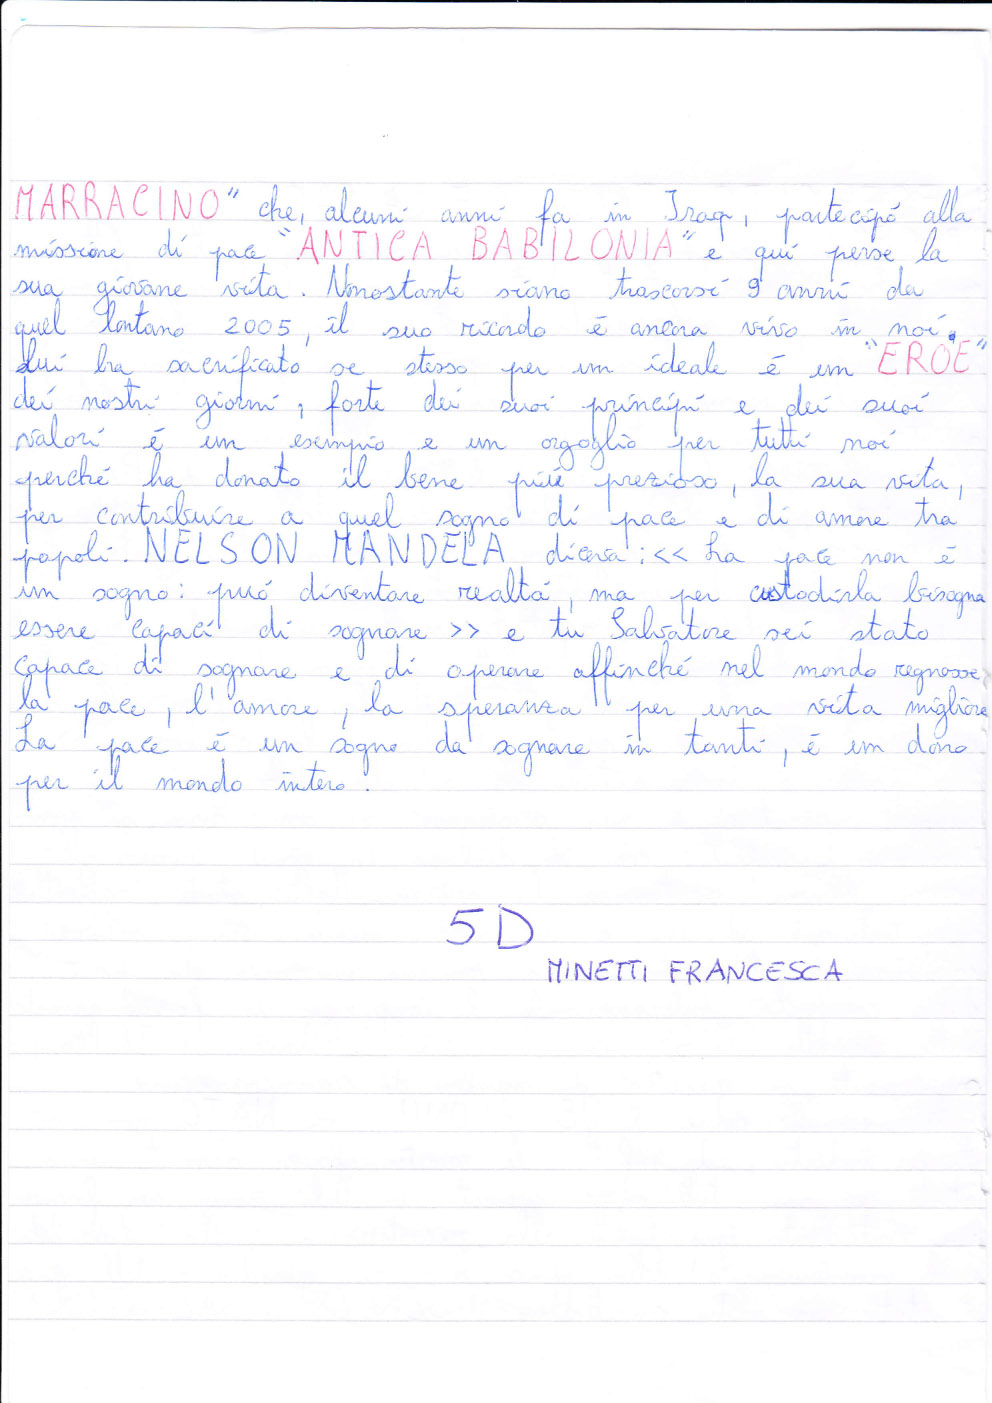 MARRACINO" che, alcuni anni fa in Iraq, partecipó alla
missione di pace "ANTICA BABILONIA" e qui perse la
sua giovane vita. Nonostante siano trascorsi 9 anni da
quel lontano 2005, il suo ricordo é ancora vivo in noi.
Lui ha sacrificato se stesso per un ideale é un "EROE"
dei nostri giorni, forte dei suoi principi e dei suoi
valori é un esempio e un orgoglio per tutti noi
perché ha donato il bene piú prezioso, la sua vita,
per contribuire a quel sogno di pace e di amore tra
popoli. NELSON MANDELA diceva: << La pace non é
un sogno: puó diventare realtá, ma per custodirla bisogna
essere capaci di sognare >> e tu Salvatore sei stato
capace di sognare e di operare affinché nel mondo regnasse
la pace, l'amore, la speranza per una vita migliore
La pace é un sogno da sognare in tanti, é un dono
per il mondo intero.
5D
MINETTI FRANCESCA